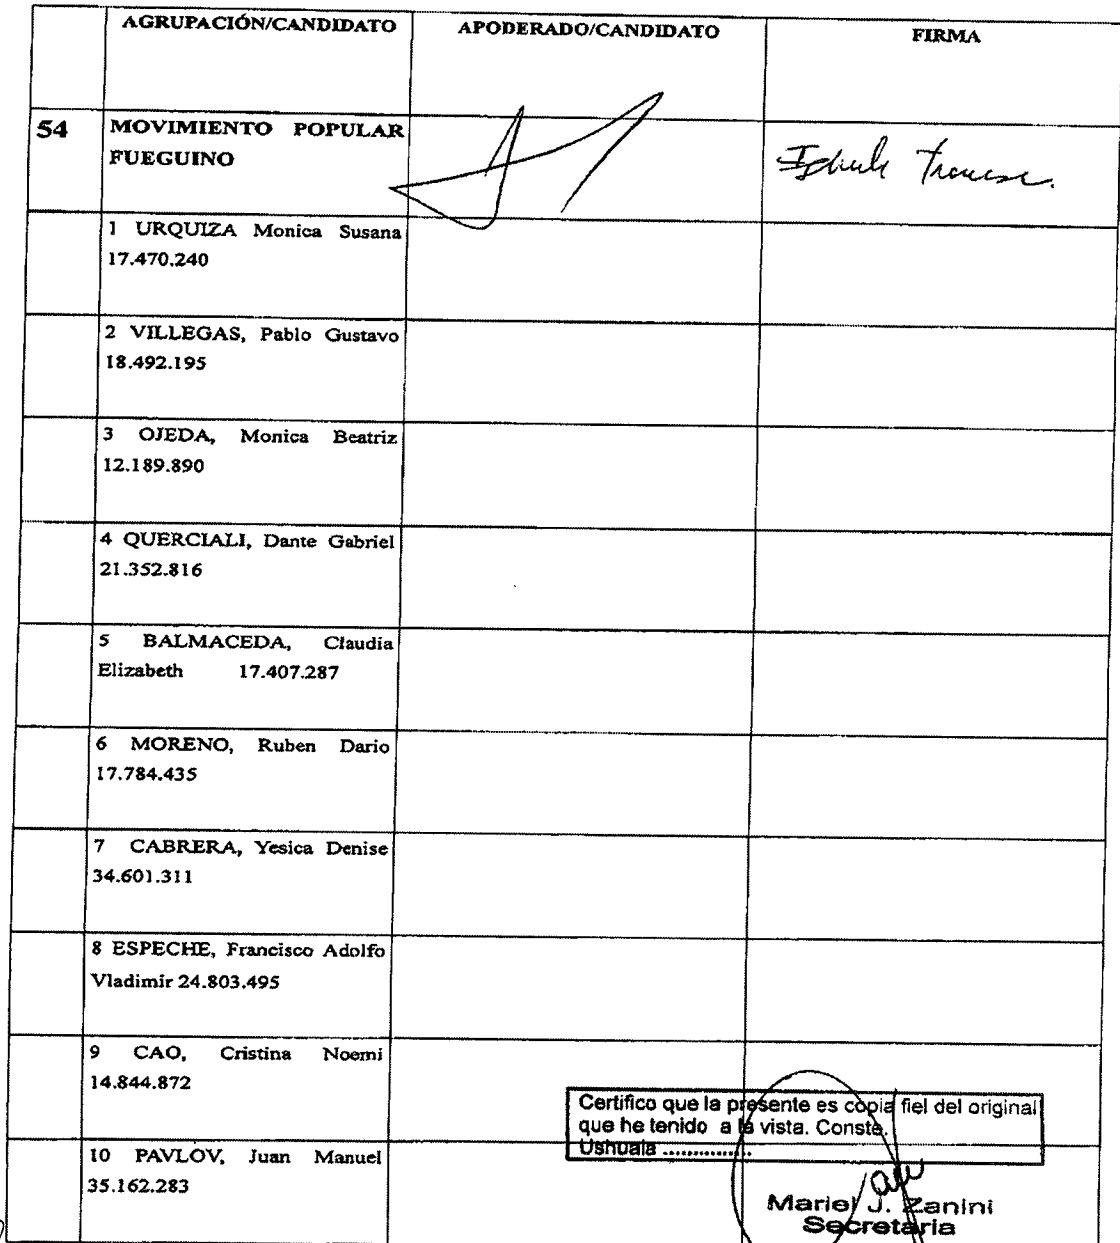 AGRUPACIÓN/CANDIDATO APODERADO/CANDIDATO FIRMA
54 MOVIMIENTO POPULAR
FUEGUINO
1 URQUIZA Monica Susana
17.470.240
2 VILLEGAS, Pablo Gustavo
18.492.195
3 OJEDA, Monica Beatriz
12.189.890
4 QUERCIALI, Dante Gabriel
21.352.816
5 BALMACEDA, Claudia
Elizabeth 17.407.287
6 MORENO, Ruben Dario
17.784.435
7 CABRERA, Yesica Denise
34.601.311
8 ESPECHE, Francisco Adolfo
Vladimir 24.803.495
9 CAO, Cristina Noemi
14.844.872
10 PAVLOV, Juan Manuel
35.162.283
Certifico que la presente es copia fiel del original
que he tenido a la vista. Conste.
Ushuaia ...............
Mariel J. Zanini
Secretaria